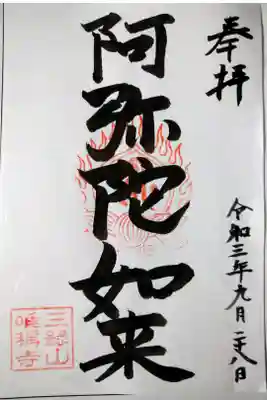 奉拝
阿弥陀如来
令和三年九月二十八日
三部山
唯称寺